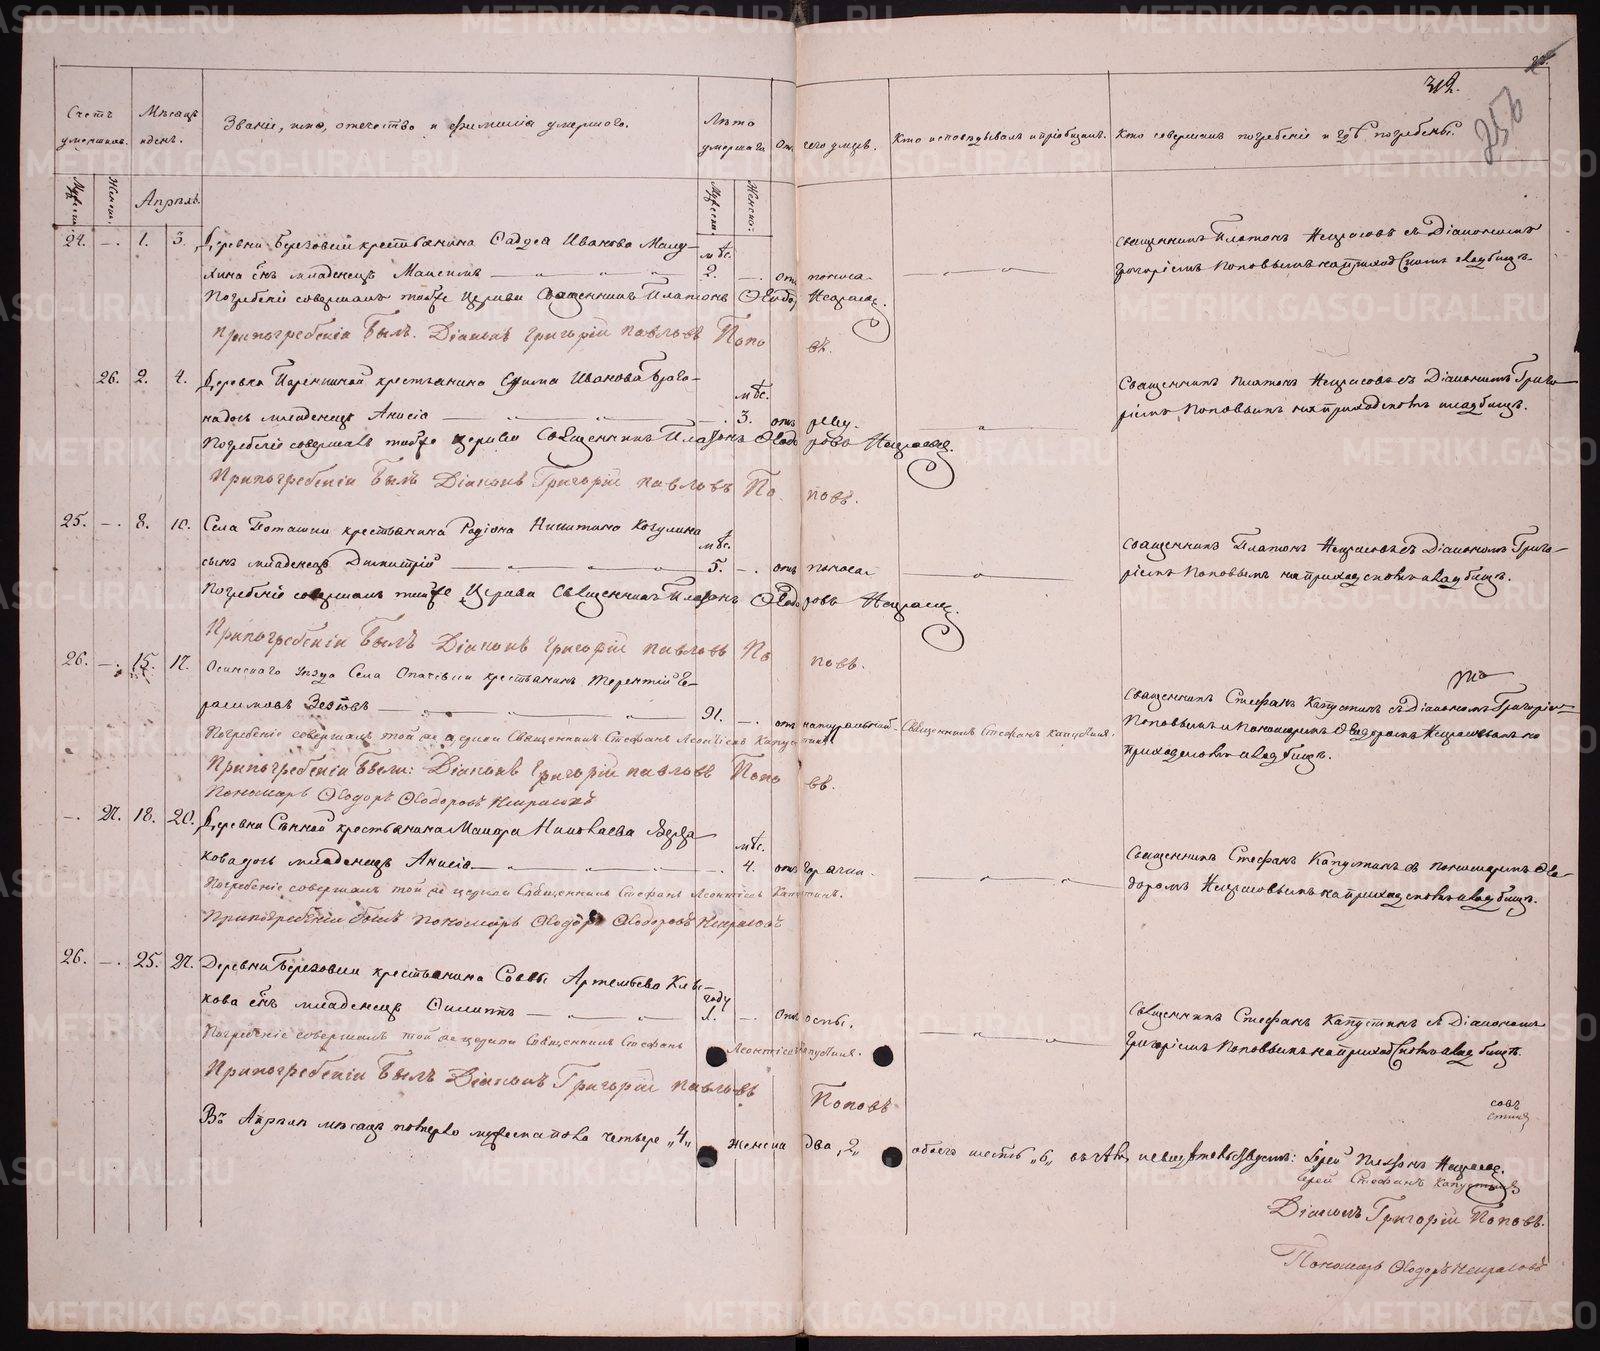 312.
256
Счетъ умершихъ.
Мѣсяцъ и день.
Званіе, имя, отечество и фамилія умершаго.
Лѣта умершаго.
Отъ чего умеръ.
Кто исповѣдывалъ и пріобщалъ.
Кто совершалъ погребеніе и гдѣ погребены.
Мужеска. Женска. Апрѣль. Мужеска. Женска.
24. —. 1. 3. Деревни Березовки крестьянина Фадѣя Иванова мѣс. Священникъ Платонъ Некрасовъ съ Діакономъ
сынъ младенецъ Максимъ 2. —. отъ поноса Григоріемъ Поповымъ на приходскомъ кладбищѣ.
Погребеніе совершалъ тойже церкви Священникъ Платонъ Ѳеодоровъ Некрасовъ.
При погребеніи былъ Діаконъ Григорій Павловъ Поповъ.
26. 2. 4. крестьянина Ефима Иванова мѣс. Священникъ Платонъ Некрасовъ съ Діакономъ Григо-
дочь младенецъ Анисія —. 3. отъ ріемъ Поповымъ на приходскомъ кладбищѣ.
Погребеніе совершалъ тойже церкви Священникъ Платонъ Ѳеодоровъ Некрасовъ.
При погребеніи былъ Діаконъ Григорій Павловъ Поповъ.
25. —. 8. 10. Села Поташки крестьянина Родіона Никитина Кочулина мѣс. Священникъ Платонъ Некрасовъ съ Діакономъ Григо-
сынъ младенецъ Димитрій 5. —. отъ поноса ріемъ Поповымъ на приходскомъ кладбищѣ.
Погребеніе совершалъ тойже Церкви Священникъ Платонъ Ѳеодоровъ Некрасовъ.
При погребеніи былъ Діаконъ Григорій Павловъ Поповъ.
26. —. 15. 17. Осинскаго уѣзда Села крестьянинъ Терентій Ге- Священникъ Стефанъ Капустинъ съ Діакономъ Григоріемъ
расимовъ 91. —. отъ натуральной Священникъ Стефанъ Капустинъ. Поповымъ и Пономаремъ Ѳеодоромъ Некрасовымъ на
Погребеніе совершалъ той же церкви Священникъ Стефанъ Леонтіевъ Капустинъ. приходскомъ кладбищѣ.
При погребеніи были: Діаконъ Григорій Павловъ Поповъ.
Пономарь Ѳеодоръ Ѳеодоровъ Некрасовъ
—. 27. 18. 20. Деревни Сѣнной крестьянина Николаева мѣс. Священникъ Стефанъ Капустинъ съ пономаремъ Ѳео-
дочь младенецъ Анисія —. 4. отъ горячки доромъ Некрасовымъ на приходскомъ кладбищѣ.
Погребеніе совершалъ той же церкви Священникъ Стефанъ Леонтіевъ Капустинъ.
При погребеніи былъ Пономарь Ѳеодоръ Ѳеодоровъ Некрасовъ
26. —. 25. 27. Деревни Березовки крестьянина Саввы Артемьева году Священникъ Стефанъ Капустинъ съ Діакономъ
сынъ младенецъ Филиппъ 1. —. Отъ оспы. Григоріемъ Поповымъ на приходскомъ кладбищѣ.
Погребеніе совершалъ той же церкви Священникъ Стефанъ Леонтіевъ Капустинъ.
При погребеніи былъ Діаконъ Григорій Павловъ Поповъ
Въ Апрѣлѣ мѣсяцѣ мужеска пола четыре „4„ Женска два „2„ обоего шесть „6„ Іерей Платонъ Некрасовъ.
Іерей Стефанъ Капустинъ
Діаконъ Григорій Поповъ.
Пономарь Ѳеодоръ Некрасовъ
METRIKI.GASO-URAL.RU